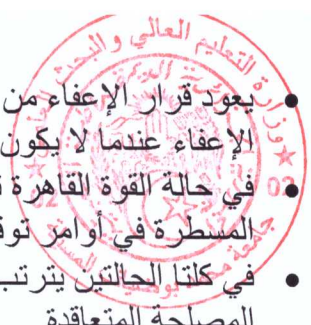 وزارة التعليم العالي والبحث
يعود قرار الإعفاء من
الإعفاء عندما لا يكون
في حالة القوة القاهرة
المسطرة في أوامر
في كلتا الحالتين يترتب
المصلحة المتعاقدة
جامعة محمد بوضياف
02